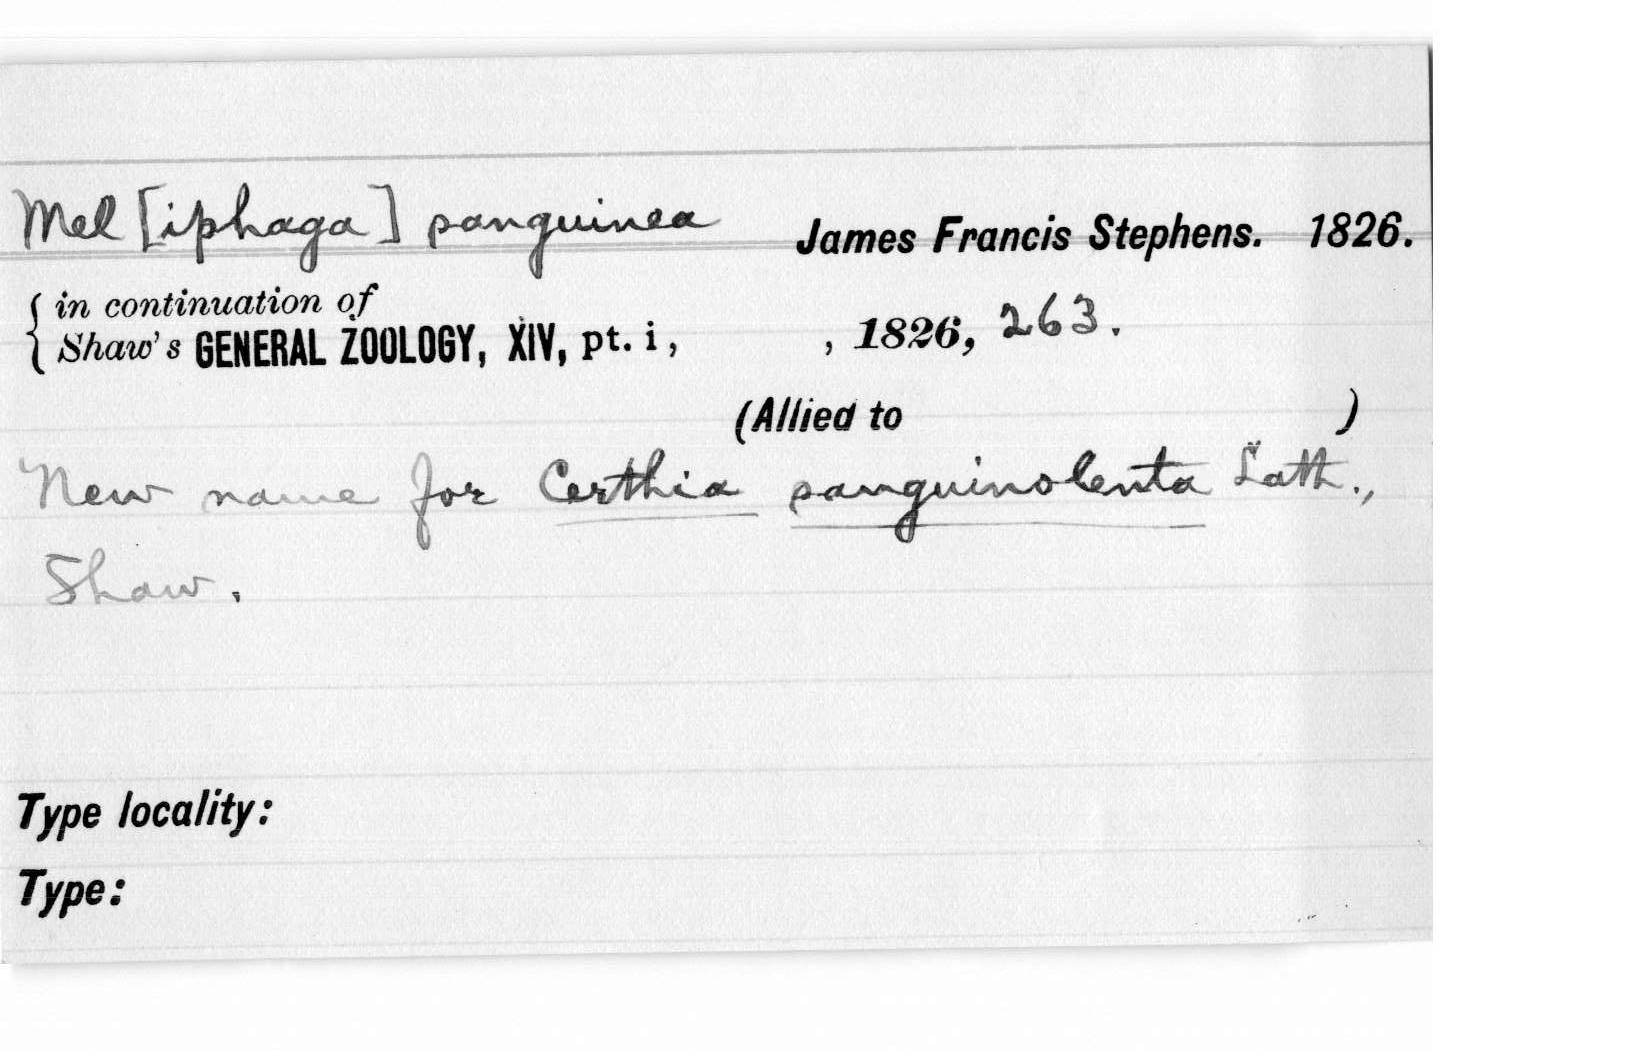 Mel [iphaga] sanguinea James Francis Stephens. 1826.
in continuation of
Shaw's GENERAL ZOOLOGY, XIV, pt. i, , 1826, 263.
(Allied to )
New name for Certhia sanguinolenta Lath.,
Shaw.
Type locality:
Type: